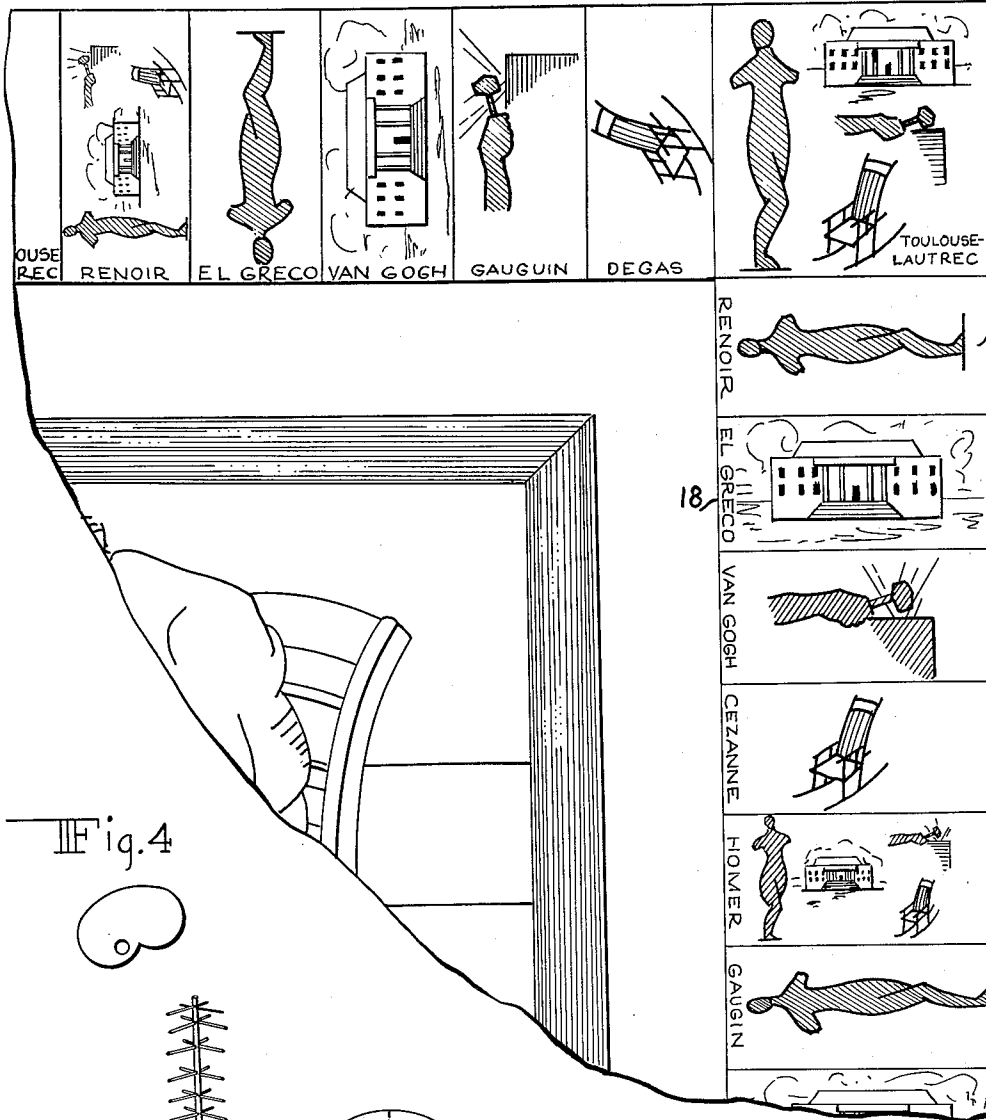 OUSE
REC
RENOIR
EL GRECO
VAN GOGH
GAUGUIN
DEGAS
TOULOUSE-
LAUTREC
RENOIR
EL GRECO
18
VAN GOGH
CEZANNE
HOMER
GAUGIN
Fig.4